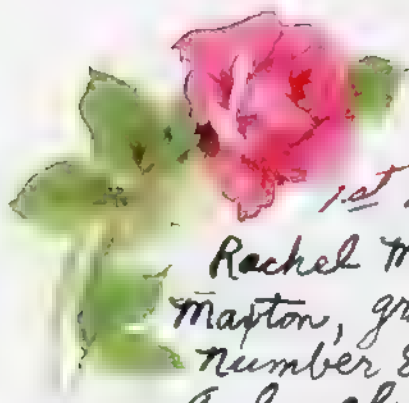 1st
Rachel M
Maxton, gr
number 8